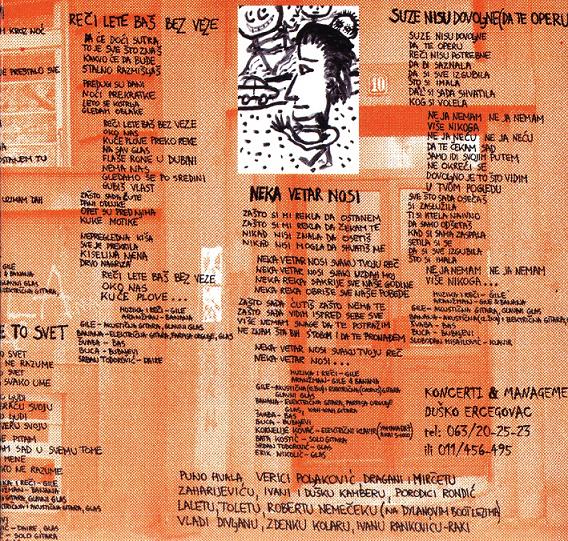 M KROZ NOĆ
E PRESTALO SVE
OSTANEM TU
UZIMAM DAH
- GILE
& BANANA
GLAVNI GLAS
ELEKTRIČNA GITARA,
E TO SVET
O SVET
NE RAZUME
O SVET
SVAKO UME
O LJUDI
SVOJU
O LJUDI
VERU SVOJU
PITAM
SAD U SVEMU TOME
MENE
NE RAZUME
I REČI - GILE
- BANANA
GITARA, GLAVNI GLAS
I AKUSTIČNA GITARA, GLAS
- DAIRE, GLAS
- SOLO GITARA
REČI LETE BAŠ BEZ VEZE
DA ĆE DOĆI SUTRA
TO JE SVE ŠTO ZNAŠ
KAKVO ĆE DA BUDE
STALNO RAZMIŠLJAŠ
PREDUGI SU DANI
NOĆI PREKRATKE
LETO SE KOTRLJA
GLEDAM OBLAKE
REČI LETE BAŠ BEZ VEZE
OKO NAS
KUČE PLOVE PREKO REKE
NA SAV GLAS
FLAŠE RONE U DUBAI
NEMA NAS
GLEDAMO SE PO SREDINI
GUBIŠ VLAST
ZAŠTO SADA ĆUTE
DANI DUGUJKE
OPET SU PRED NJIMA
KUKE MOTIKE
NEPREGLEDNA KIŠA
SVE JE PREKRILA
KISELINA NJENA
DRVO NAGRIZA
REČI LETE BAŠ BEZ VEZE
OKO NAS
KUČE PLOVE...
MUZIKA I REČI - GILE
ARANŽMANI - GILE & BANANA
GILE - AKUSTIČNA GITARA, GLAVNI GLAS
BANANA - ELEKTRIČNA GITARA, PARTIJA ORGULJE, GLAS
ŠVABA - BAS
BUCA - BUBNJEVI
SRĐAN TODOROVIĆ - DAIRE
NEKA VETAR NOSI
ZAŠTO SI MI REKLA DA OSTANEM
ZAŠTO SI MI REKLA DA ČEKAM TE
NIKAD NISI ZNALA DA OSETIŠ
NIKAD NISI MOGLA DA SHVATIŠ NE
NEKA VETAR NOSI SVAKU TVOJU REČ
NEKA VETAR NOSI SVAKI UZDAH MOJ
NEKA REKA SAKRIJE SVE NAŠE GODINE
NEKA REKA OBRIŠE SVE NAŠE POBEDE
ZAŠTO SADA ĆUTIŠ ZAŠTO NEMA TE
ZAŠTO SADA VIDIM ISPRED SEBE SVE
VIŠE NEMAM SNAGE DA TE POTRAŽIM
NE ZNAM ŠTA DA ŠTOBOM I DA TE PRONAĐEM
NEKA VETAR NOSI SVAKU TVOJU REČ
NEKA VETAR NOSI....
MUZIKA I REČI - GILE
ARANŽMANI - GILE & BANANA
GILE - AKUSTIČNA (12.ŽICA) I ELEKTRIČNA GITARA,
GLAVNI GLAS
BANANA - ELEKTRIČNA GITARA, PARTIJA ORGULJE
GLAS,
ŠVABA - BAS
BUCA - BUBNJEVI
KORNELIJE KOVAČ - ELEKTRIČNI KLAVIR (YAMAHA
BATA KOSTIĆ - SOLO GITARA
SRĐAN TODOROVIĆ - GLAS
ERIK NIKOLIĆ - GLAS
10
SUZE NISU DOVOLJNE (DA TE OPERU
SUZE NISU DOVOLJNE
DA TE OPERU
REČI NISU POTREBNE
DA BI SAZNALA
DA SI SVE IZGUBILA
ŠTO SI IMALA
DAL' SI SADA SHVATILA
KOG SI VOLELA
NE JA NEMAM NE JA NEMAM
VIŠE NIKOGA
NE JA NEĆU NE JA NEĆU
DA TE ČEKAM SAD
SAMO IDI SVOJIM PUTEM
NE OKREĆI SE
DOVOLJNO JE TO ŠTO VIDIM
U TVOM POGLEDU
SVE ŠTO SADA OSEĆAŠ
SI ZASLUŽILA
TI SI HTELA NAIVNO
DA SAMO ODŠETAŠ
KAD SI SAMA ZASPALA
SETILA SI SE
DA SI SVE IZGUBILA
ŠTO SI IMALA
NE JA NEMAM NE JA NEMAM
VIŠE NIKOGA...
MUZIKA I REČI - GILE
ARANŽMANI - GILE & BANANA
GILE - AKUSTIČNA GITARA, GLAVNI GLAS
BANANA - AKUSTIČNA (12.ŽICA) I ELEKTRIČNA GITARA,
ŠVABA - BAS
BUCA - BUBNJEVI
SLOBODAN MISAILOVIĆ - KLAVIR
KONCERTI & MANAGEME
DUŠKO ERCEGOVAC
tel: 063/20-25-23
ili 011/456-495
PUNO HVALA VERICI POLJAKOVIĆ DRAGANI I MIRČETU
ZAHARIJEVIĆU, IVANI I DUŠKU KAMBERU, PORODICI RONDIĆ
LALETU, TOLETU, ROBERTU NEMEČEKU (NA DYLANOVIM BOOTLEZIMA)
VLADI DIVLJANU, ZDENKU KOLARU, IVANU RANKOVIĆU-RAKI